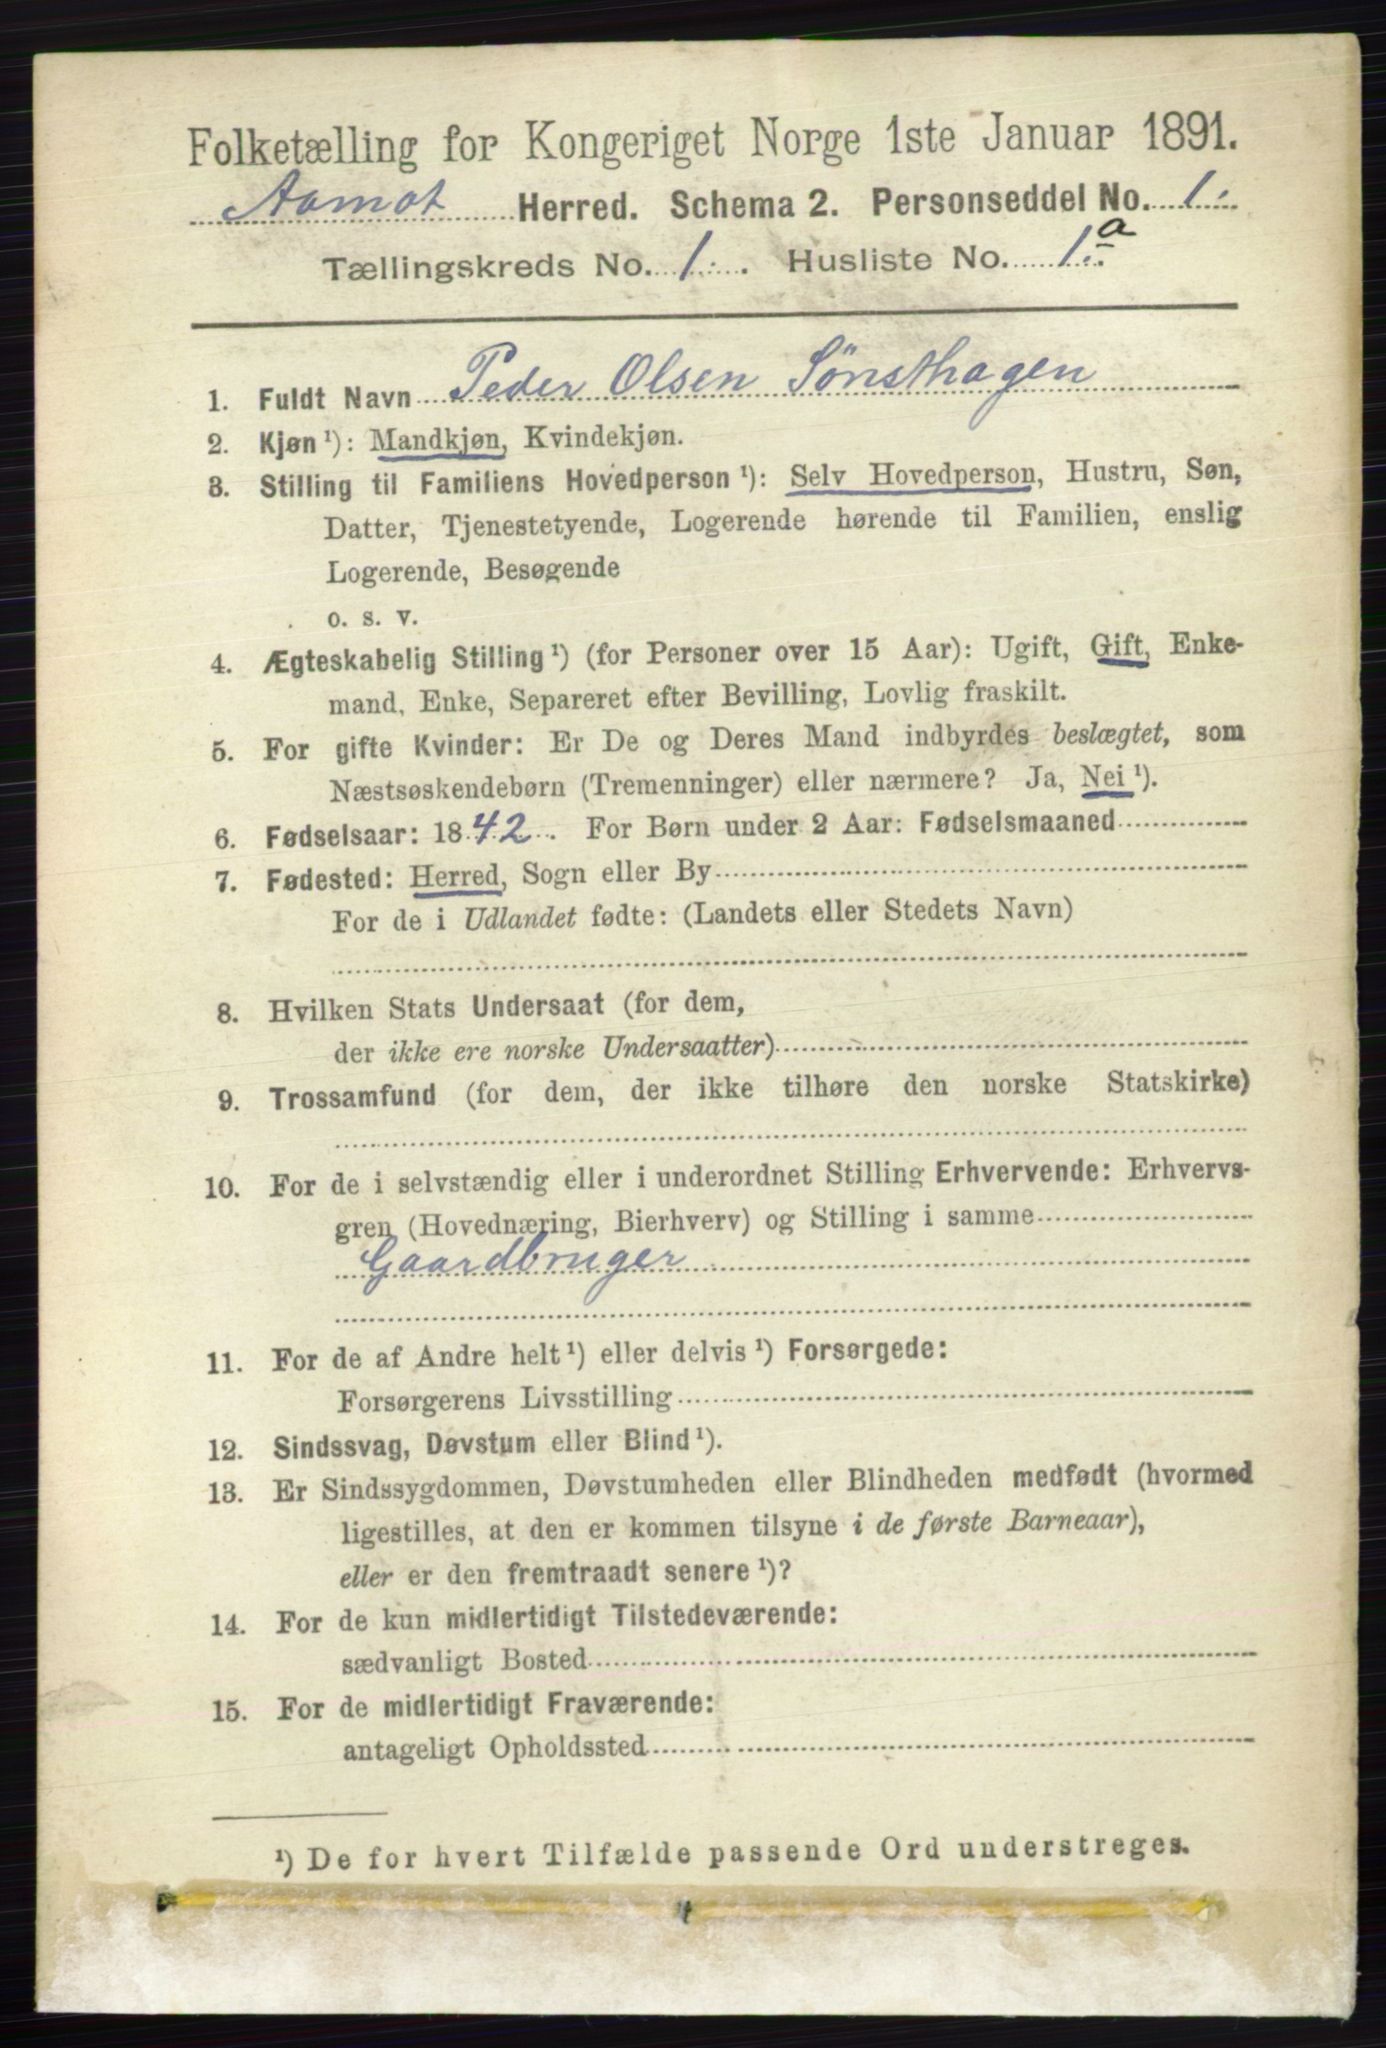 Folketælling for Kongeriget Norge 1ste Januar 1891.
Aamot Herred. Schema 2. Personseddel No. 1.
Tællingskreds No. 1. Husliste No. 1.a
1. Fuldt Navn Peder Olsen Sønsthagen
2. Kjøn ¹): Mandkjøn, Kvindekjøn.
3. Stilling til Familiens Hovedperson ¹): Selv Hovedperson, Hustru, Søn,
Datter, Tjenestetyende, Logerende hørende til Familien, enslig
Logerende, Besøgende
o. s. v.
4. Ægteskabelig Stilling ¹) (for Personer over 15 Aar): Ugift, Gift, Enke-
mand, Enke, Separeret efter Bevilling, Lovlig fraskilt.
5. For gifte Kvinder: Er De og Deres Mand indbyrdes beslægtet, som
Næstsøskendebørn (Tremenninger) eller nærmere? Ja, Nei ¹).
6. Fødselsaar: 1842. For Børn under 2 Aar: Fødselsmaaned
7. Fødested: Herred, Sogn eller By
For de i Udlandet fødte: (Landets eller Stedets Navn)
8. Hvilken Stats Undersaat (for dem,
der ikke ere norske Undersaatter)
9. Trossamfund (for dem, der ikke tilhøre den norske Statskirke)
10. For de i selvstændig eller i underordnet Stilling Erhvervende: Erhvervs-
gren (Hovednæring, Bierhverv) og Stilling i samme
Gaardbruger
11. For de af Andre helt ¹) eller delvis ¹) Forsørgede:
Forsørgerens Livsstilling
12. Sindssvag, Døvstum eller Blind ¹).
13. Er Sindssygdommen, Døvstumheden eller Blindheden medfødt (hvormed
ligestilles, at den er kommen tilsyne i de første Barneaar),
eller er den fremtraadt senere ¹)?
14. For de kun midlertidigt Tilstedeværende:
sædvanligt Bosted
15. For de midlertidigt Fraværende:
antageligt Opholdssted
¹) De for hvert Tilfælde passende Ord understreges.